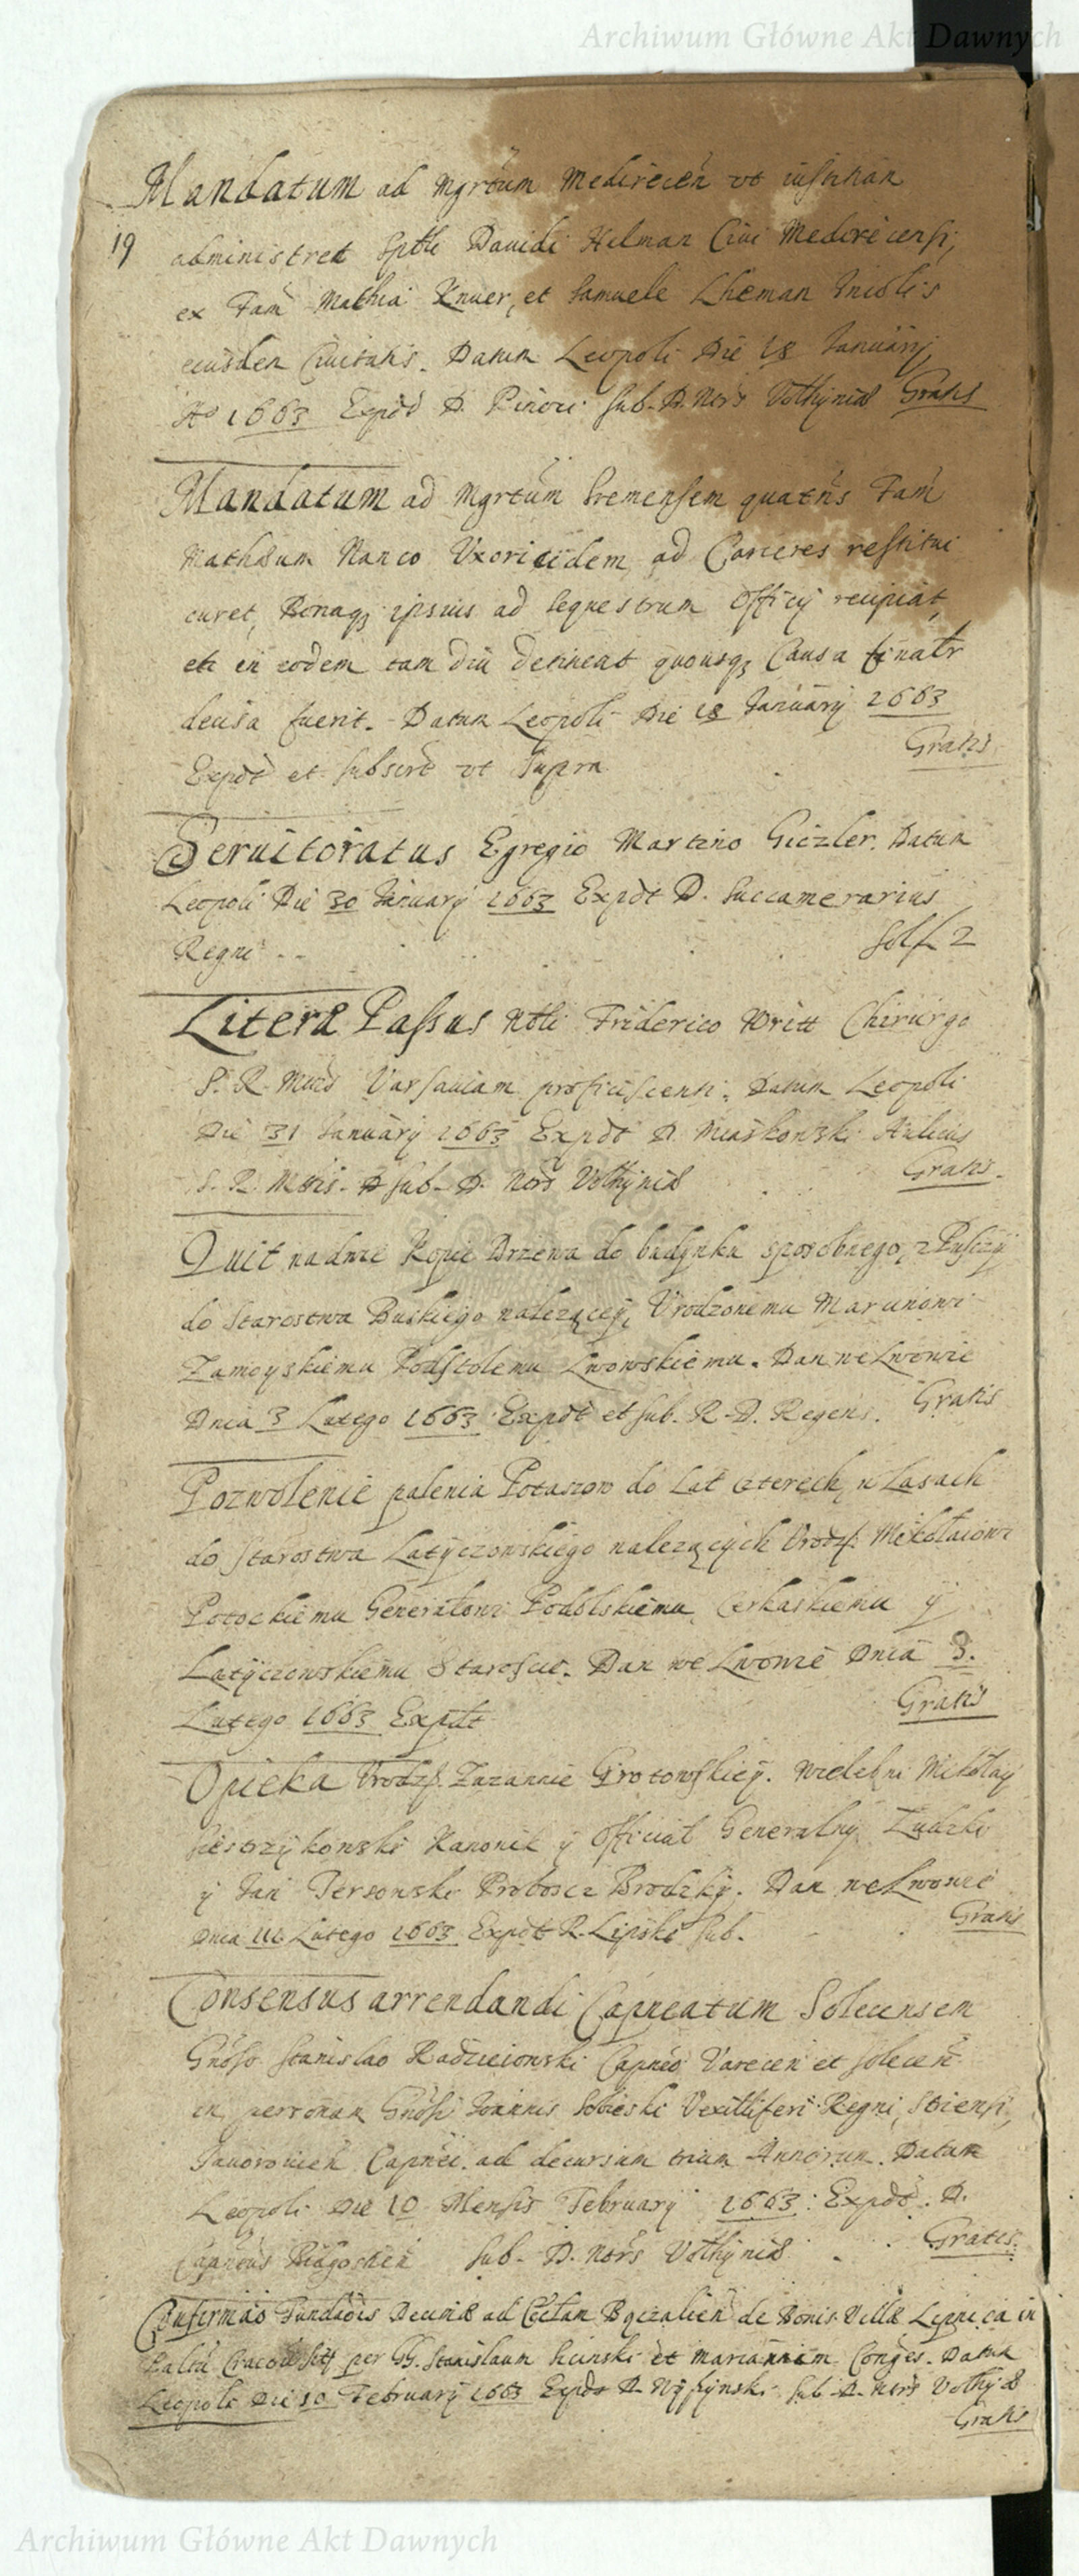 Archiwum Główne Akt Dawnych
Mandatum ad Mgrtum Medirecen ut iustitian
19
administret Sptli Dauidi Helman Ciui Medirecensi,
ex Fam Mathia Knuer, et Samuele Lheman Incolis
eiusdem Ciuitatis. Datum Leopoli Die 18 Januarij
Ao 1663 Expdt D. Pinoci sub. D. Notrs Volhyniæ Gratis
Mandatum ad Mgrtum Sremensem quatns Fam
Mathæum Nanco Uxoricidem ad Carceres restitui
curet, Bonaq; ipsius ad sequestrum Officij recipiat,
et in eodem tam diu detineat quousq; Causa finalr
decisa fuerit. Datum Leopoli Die 18 Januarij 1663
Gratis
Expdt et subscrt ut supra
Seruitoratus Egregio Martino Giczler. Datum
Leopoli Die 30 Januarij 1663 Expdt D. Succamerarius
Regni
sol f 2
Literæ Passus Nobli Friderico Writt Chirurgo
S. R. Mttis Varsauiam proficiscenti. Datum Leopoli
Die 31 Januarij 1663 Expdt D. Miaskowski Aulicus
S. R. Mttis. sub. D. Notrs Volhyniæ
Gratis
Quit na dwie Kopie Drzewa do budynku sposobnego, z Pusczy
do Starostwa Buskiego nalezącey, Urodzonemu Marcinowi
Zamoyskiemu Podstolemu Lwowskiemu. Dan we Lwowie
Dnia 3 Lutego 1663 Expdt et sub. R. D. Regens. Gratis
Pozwolenie palenia Potaszow do Lat czterech, w Lasach
do Starostwa Latyczowskiego nalezących Urodz: Mikołaiowi
Potockiemu Generałowi Podolskiemu, Cerkaskiemu y
Latyczowskiemu Staroscie. Dan we Lwowie Dnia 8.
Lutego 1663 Expdt
Gratis
Opieka Urodz. Zuzannie Grotowskiey. Wielebni Mikołay
Kanonik y Officiał Generalny Łudzki
y Jan Tersowski Proboscz Brodzky. Dan we Lwowie
Dnia Lutego 1663 Expdt R. Lipski sub.
Gratis
Consensus arrendandi Capneatum Solecensem
Gnoso Stanislao Radzieiowski Capneo Varecen et Solecen
in personam Gnosi Joannis Sobieski Vexilliferi Regni, Striensis,
Jauorouien Capnei. ad decursum trium Annorum. Datum
Leopoli Die 10 Mensis February 1663. Expdt. D.
Capneus Bidgostien sub. D. Notrs Volhyniæ
Gratis.
Confirmao Fundaois Decimæ ad Ecclam de Bonis Villæ Lipnica in
Paltu Cracou sitis per GG. Stanislaum et Mariannam Conges. Datum
Leopoli Die 10 February 1663 Expdt D. Wyszynski sub. D. Notrs Volhyniæ
Gratis
Archiwum Główne Akt Dawnych